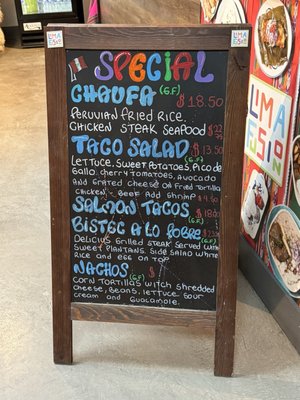 LIMA
ESKINA
SPECIAL
CHAUFA (G.F) $18.50
PERUVIAN FRIED RICE.
CHICKEN STEAK SEAFOOD
TACO SALAD $13.50
LETTUCE, SWEET POTATOES, PICO DE
GALLO, CHERRY TOMATOES, AVOCADO
AND GRATED CHEESE ON FRIED TORTILLA
CHICKEN - BEEF ADD SHRIMP
SALMON TACOS
(G.F)
BISTEC A LO POBRE
DELICIUS GRILLED STEAK SERVED WITH
SWEET PLANTAINS, SIDE SALAD WHITE
RICE AND EGG ON TOP
NACHOS (G.F) $
CORN TORTILLAS WITCH SHREDDED
CHEESE, BEANS, LETTUCE SOUR
CREAM AND GUACAMOLE.
LIMA